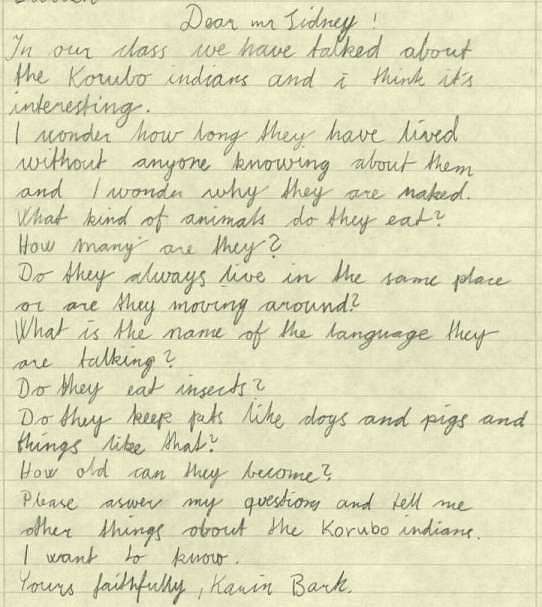 Dear mr Sidney!
In our class we have talked about
the Korubo indians and i think it's
interesting.
I wonder how long they have lived
without anyone knowing about them
and I wonder why they are naked.
What kind of animals do they eat?
How many are they?
Do they always live in the same place
or are they moving around?
What is the name of the language they
are talking?
Do they eat insects?
Do they keep pets like dogs and pigs and
things like that?
How old can they become?
Please aswer my questions and tell me
other things about the Korubo indians.
I want to know.
Yours faithfully, Karin Bark.